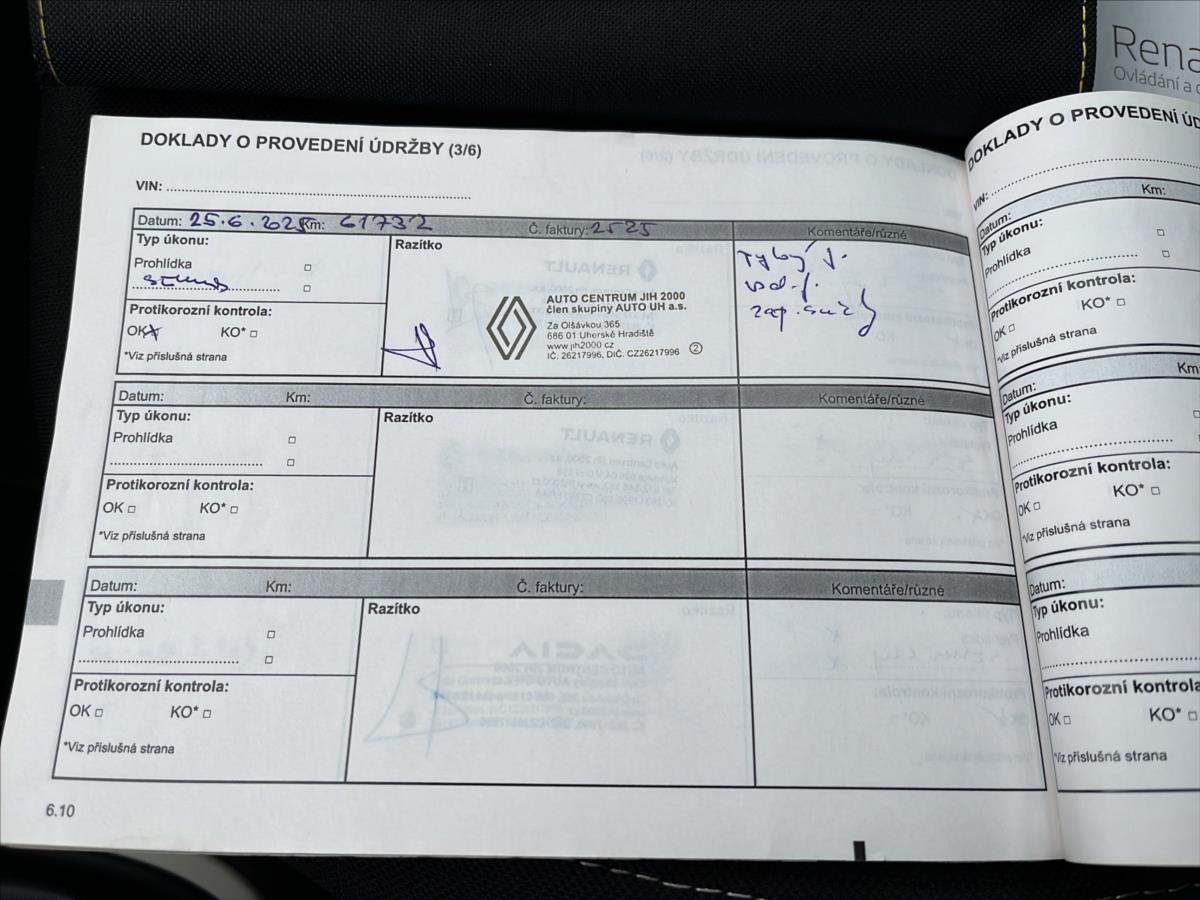 Rena
Ovládání a o
DOKLADY O PROVEDENÍ ÚDRŽBY (3/6)
VIN:
Datum: 25.6.2025 Km: 61732 Č. faktury: 2525 Komentáře/různé
Typ úkonu:
Prohlídka
Protikorozní kontrola:
OK KO*
*Viz příslušná strana
Razítko
AUTO CENTRUM JIH 2000
člen skupiny AUTO UH a.s.
Za Olšávkou 365
686 01 Uherské Hradiště
www.jih2000 cz
IČ: 26217996, DIČ. CZ26217996 2
zap. svíčky
Datum: Km: Č. faktury: Komentáře/různé
Typ úkonu:
Prohlídka
Protikorozní kontrola:
OK KO*
*Viz příslušná strana
Razítko
Datum: Km: Č. faktury: Komentáře/různé
Typ úkonu:
Prohlídka
Protikorozní kontrola:
OK KO*
*Viz příslušná strana
Razítko
6.10
DOKLADY O PROVEDENÍ ÚD
VIN:
Datum: Km:
Typ úkonu:
Prohlídka
Protikorozní kontrola:
OK KO*
*Viz příslušná strana
Datum: Km
Typ úkonu:
Prohlídka
Protikorozní kontrola:
OK KO*
*Viz příslušná strana
Datum:
Typ úkonu:
Prohlídka
Protikorozní kontrola
OK KO*
*Viz příslušná strana